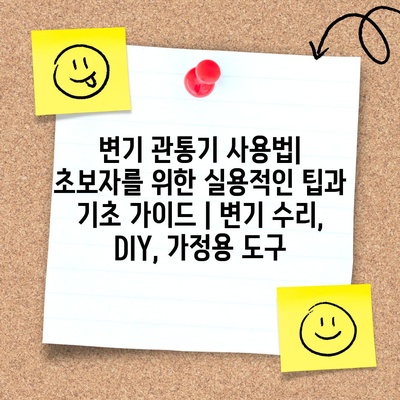 변기 관통기 사용법|
초보자를 위한 실용적인 팁과
기초 가이드 | 변기 수리,
DIY, 가정용 도구